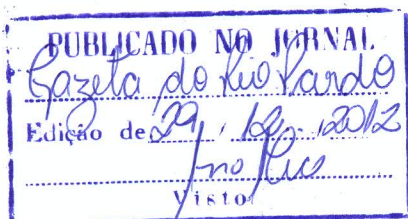 PUBLICADO NO JORNAL
Gazeta do Rio Pardo
Edição de 29, 12, 2012
Visto